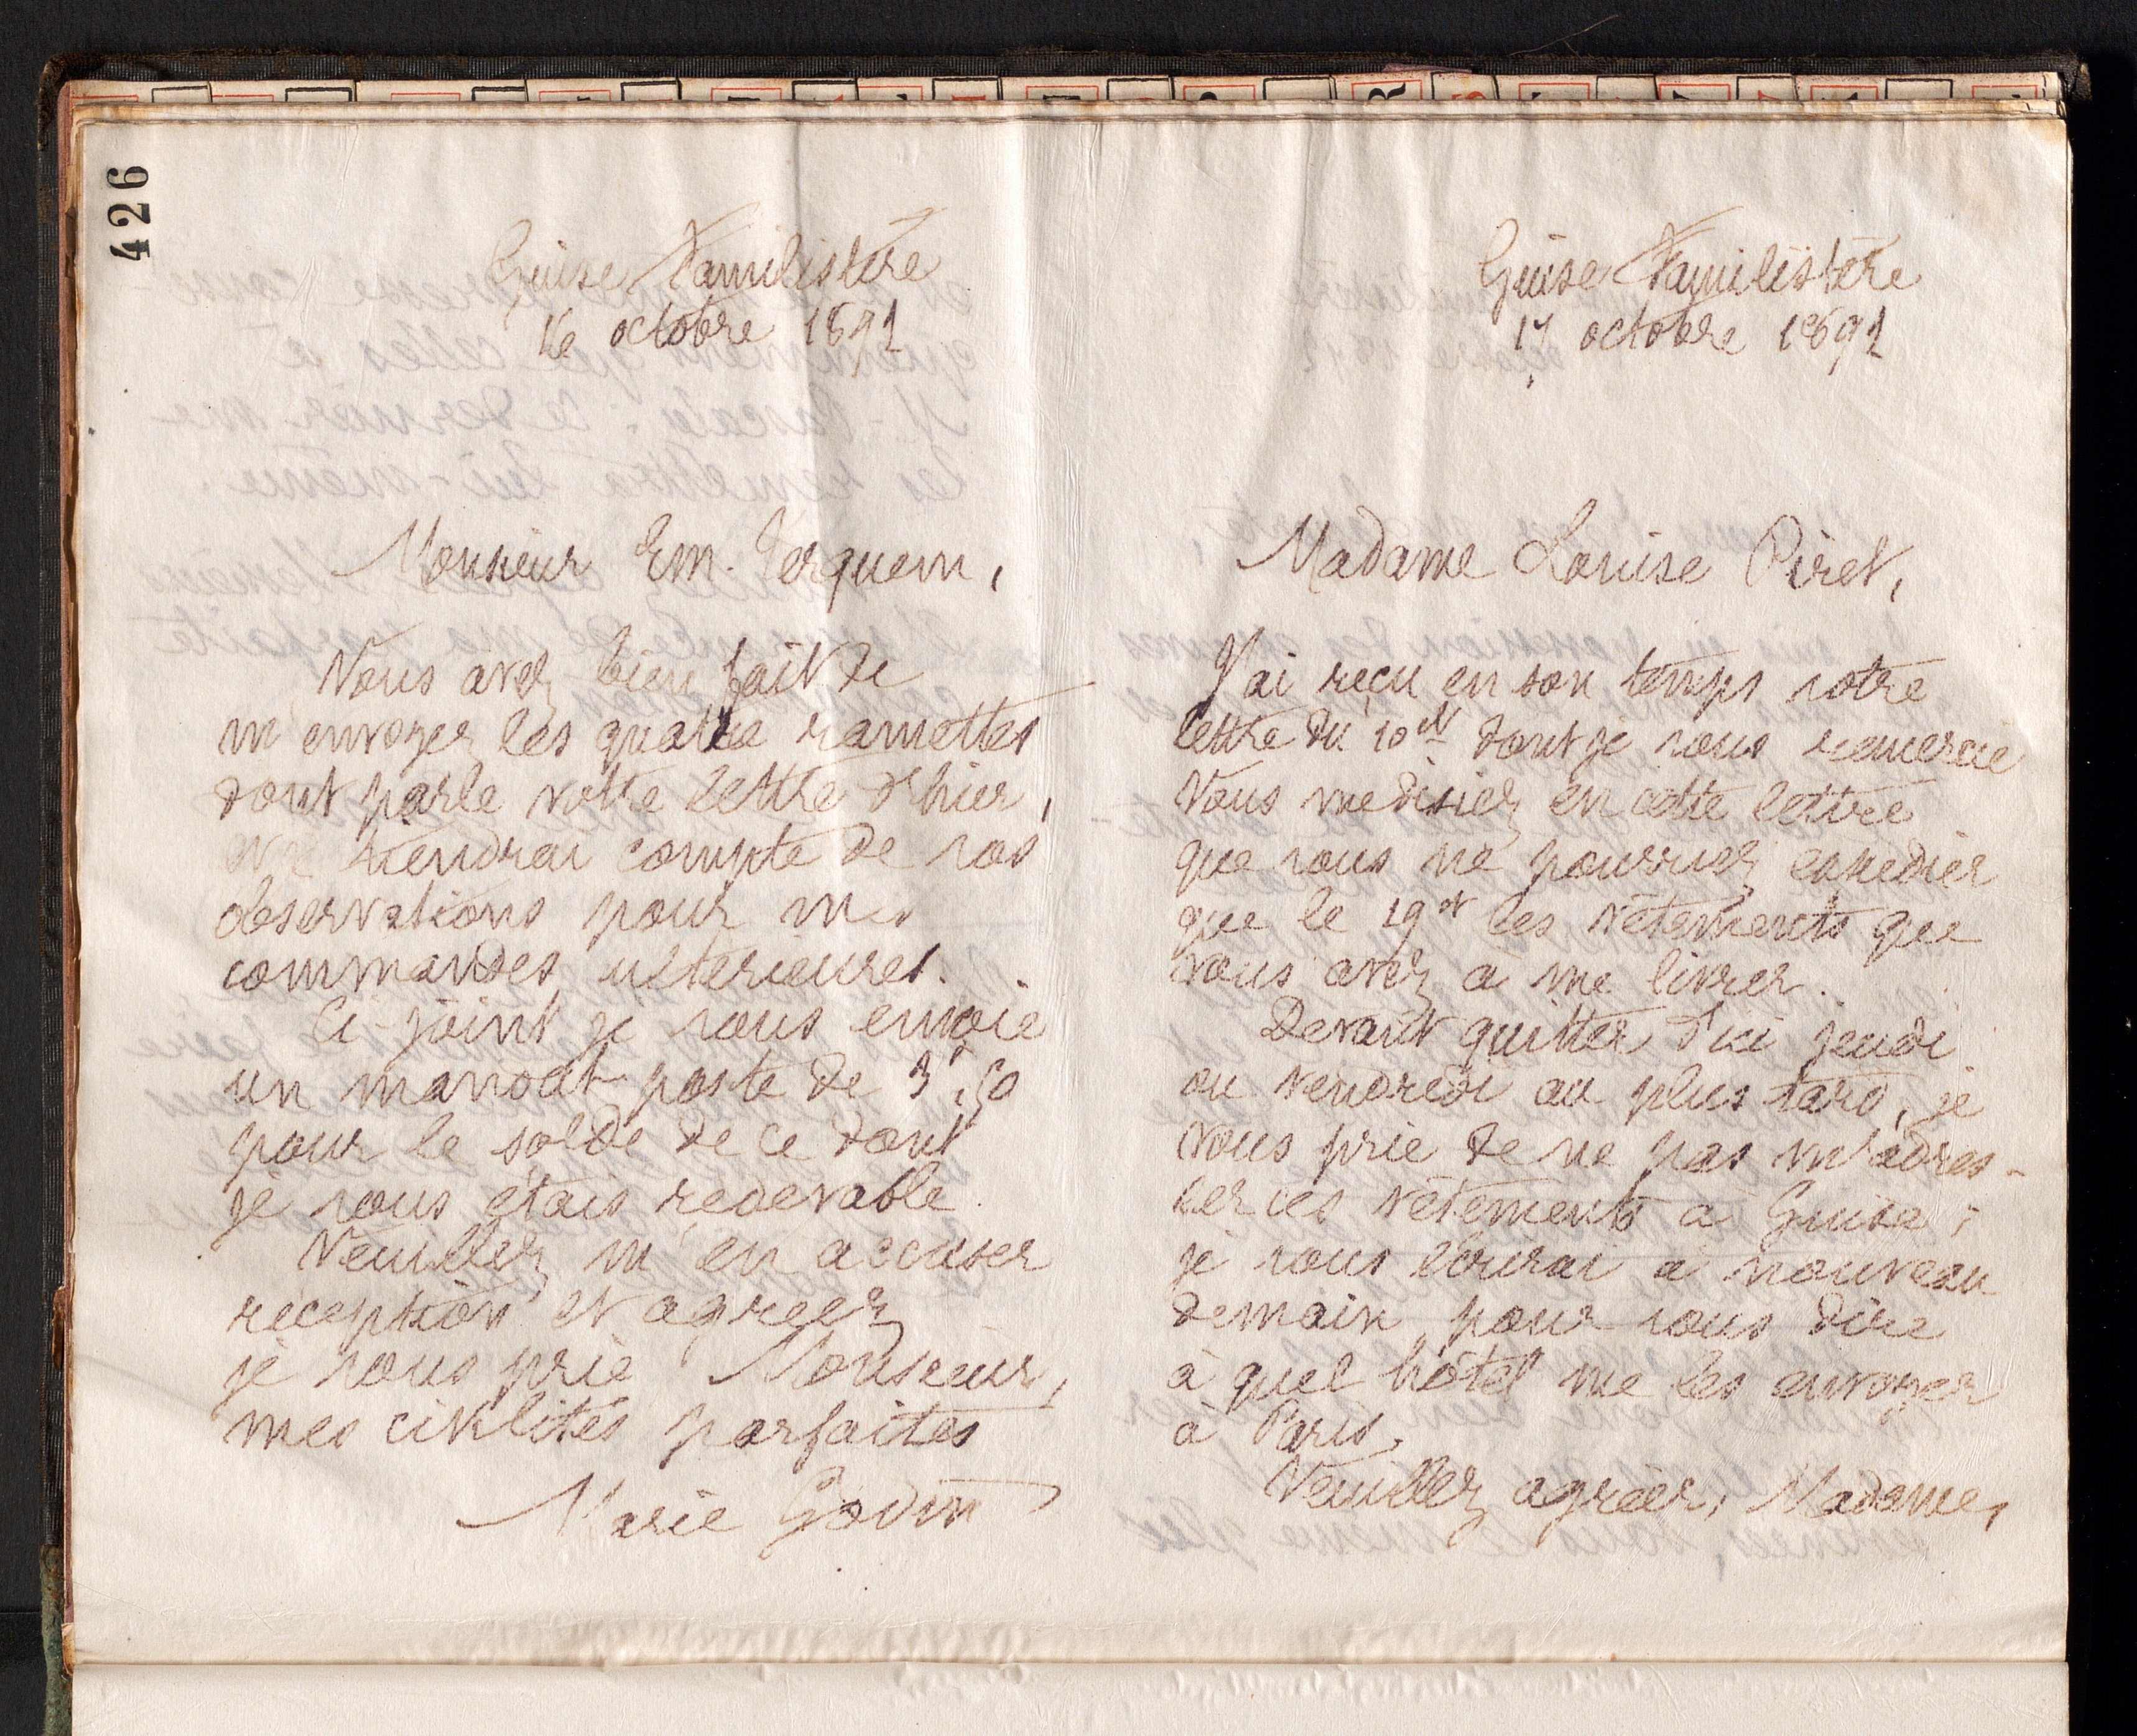 426
Guise Familistère
16 octobre 1891
Monsieur Em. Terquem,
Vous avez bien fait de
m'envoyer les quatre ramettes
dont parle votre lettre d'hier,
tiendrai compte de vos
observations pour mes
commandes ultérieures.
Ci-joint je vous envoie
un mandat-poste de 3f,50
pour le solde de ce dont
je vous étais redevable.
Veuillez m'en accuser
réception et agréer,
je vous prie Monsieur,
mes civilités parfaites
Marie Godin
Guise Familistère
17 octobre 1891
Madame Louise Piret,
J'ai reçu en son temps votre
lettre du 10ct dont je vous remercie
Vous me disiez en cette lettre
que vous ne pourriez expédier
que le 19ct les vêtements que
vous avez à me livrer.
Devant quitter d'ici jeudi
ou vendredi au plus tard, je
vous prie de ne pas m'adres-
ser ces vêtements à Guise ;
je vous écrirai à nouveau
demain pour vous dire
à quel hôtel me les envoyer
à Paris.
Veuillez agréer, Madame,